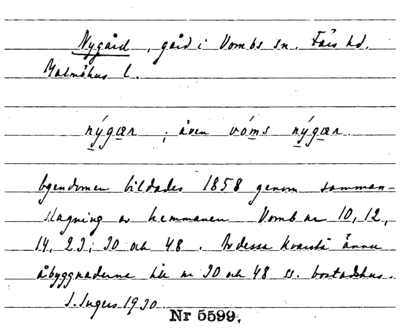 Nygård, gård i Vombs sn. Färs hd.
Malmöhus l.
nýgær ; även vóms nýgær
Egendomen bildades 1858 genom samman-
slagning av hemmanen Vomb nr 10, 12,
14, 23, 30 och 48. Av dessa kvarstå ännu
åbyggnaderna till nr 30 och 48 ss. bostadshus.
S. Ingers 1930
Nr 5599.